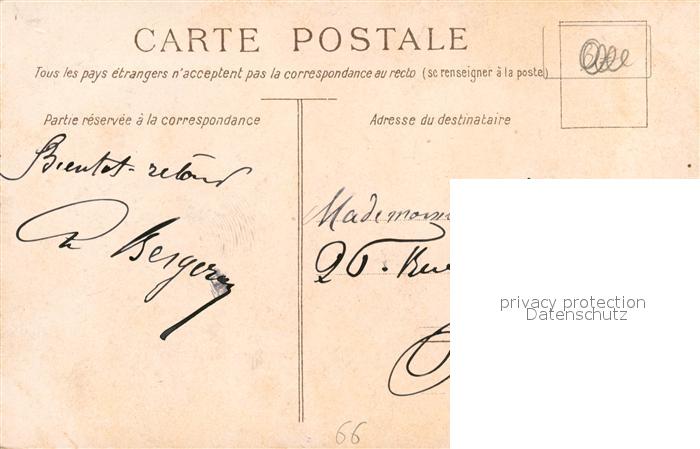 CARTE POSTALE
Tous les pays étrangers n'acceptent pas la correspondance au recto (se renseigner à la poste)
Partie réservée à la correspondance
Adresse du destinataire
Bientot - retour
Bergeron
Mademois
Rue
66
privacy protection
Datenschutz